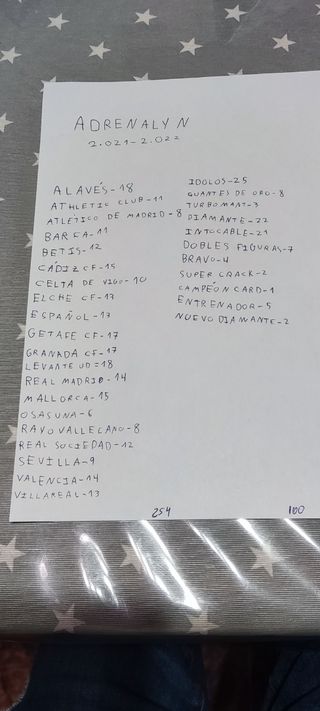 ADRENALYN
2.021-2.022
ALAVÉS-18
ATHLETIC CLUB-11
ATLÉTICO DE MADRID-8
BARÇA-11
BETIS-12
CÁDIZ CF-15
CELTA DE VIGO-10
ELCHE CF-13
ESPAÑOL-13
GETAFE CF-17
GRANADA CF-17
LEVANTE UD=18
REAL MADRID-14
MALLORCA-15
OSASUNA-6
RAYO VALLECANO-8
REAL SOCIEDAD-12
SEVILLA-9
VALENCIA-14
VILLAREAL-13
254
IDOLOS-25
GUANTES DE ORO-8
TURBOMANT-3
DIAMANTE-22
INTOCABLE-21
DOBLES FIGURAS-7
BRAVO-4
SUPER CRACK-2
CAMPEÓN CARD-1
ENTRENADOR-5
NUEVO DIAMANTE-2
100